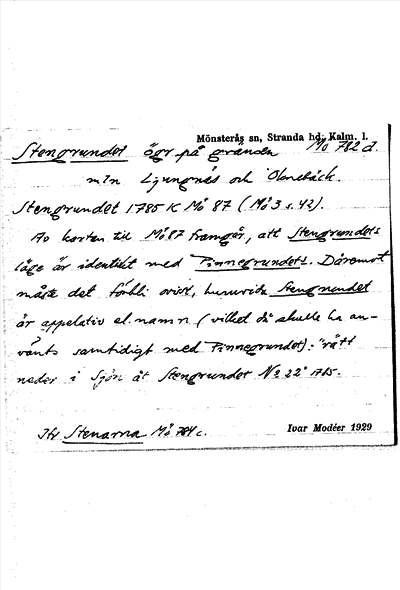 Mönsterås sn, Stranda hd, Kalm. l.
Stengrundet ögr på gränsen Mö 782 d.
m/n Ljungnäs och Oknebäck.
Stengrundet 1785 K Mö 87 (Mö 3 s. 42).
Av kartan till Mö 87 framgår, att Stengrundets
läge är identiskt med Pinnegrundets. Däremot
måste det förbli ovisst, huruvida Stengrundet
är appellativ el. namn (vilket då skulle ha an-
vänts samtidigt med Pinnegrundet): "rätt
neder i Sjön åt Stengrundet No 22" 1785.
Jfr Stenarna Mö 784 c.
Ivar Modéer 1929